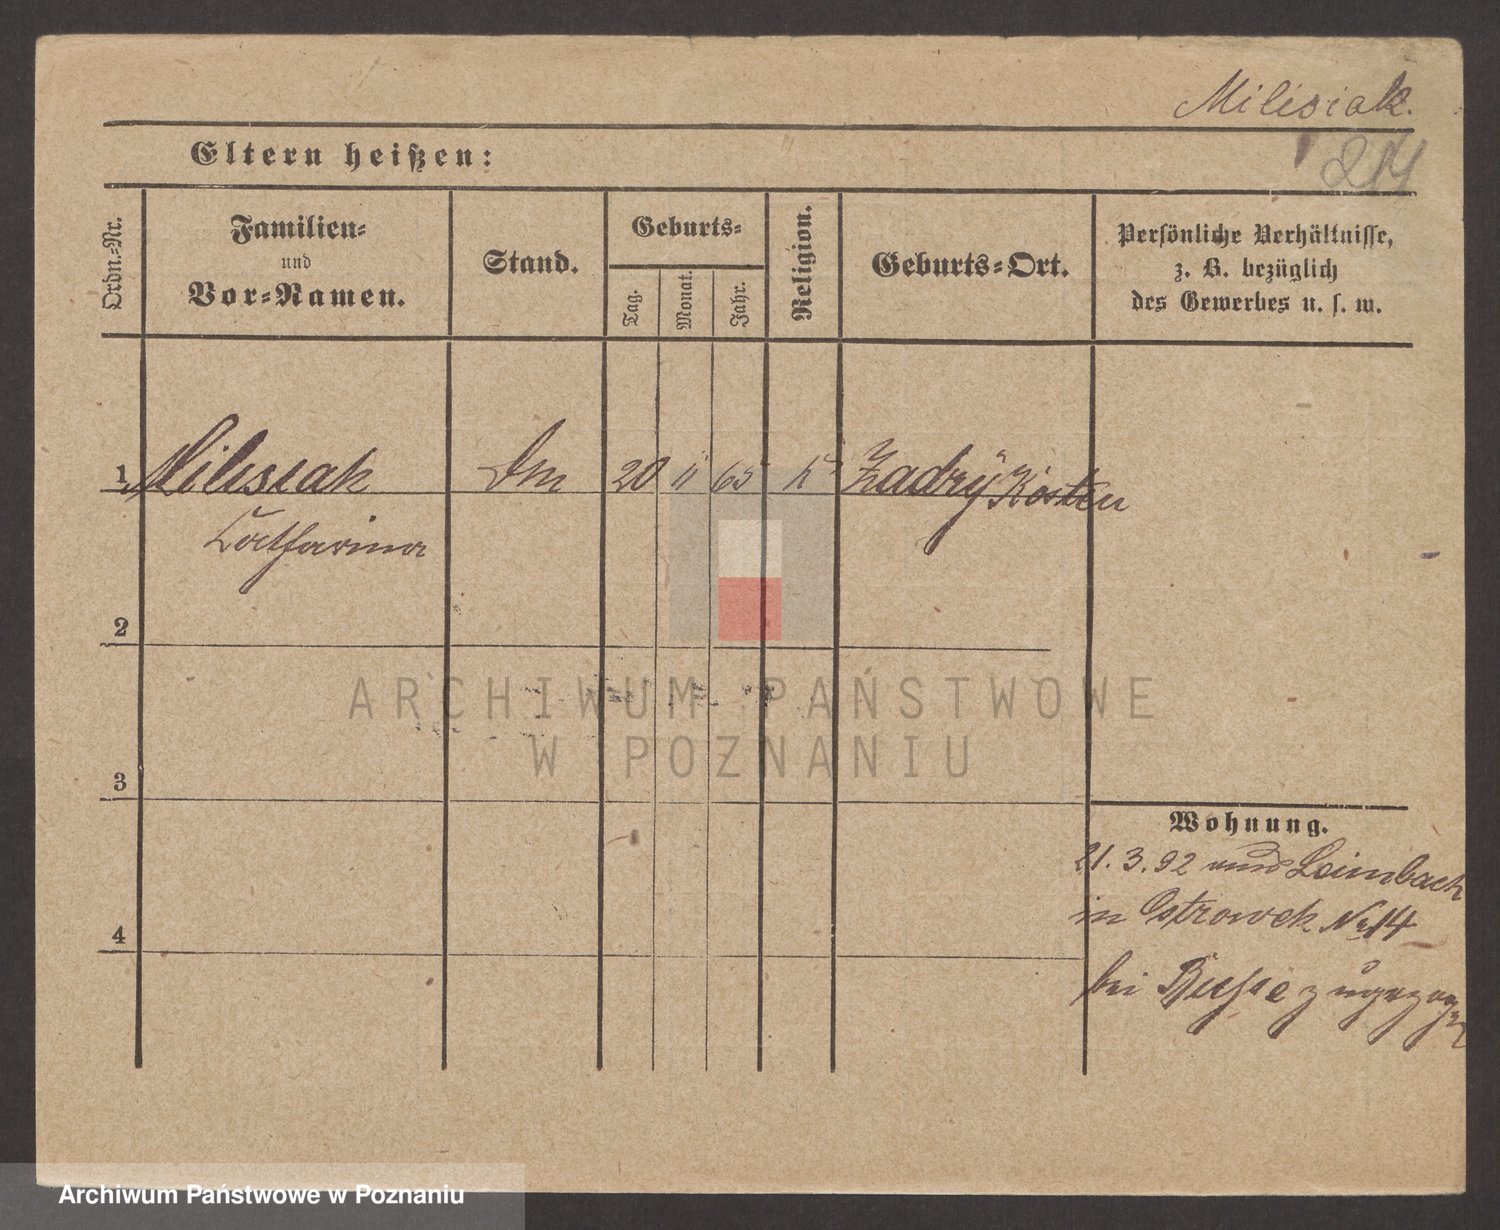 Milisiak.
214
Eltern heißen:
Ordn.-Nr.
Familien-
und
Vor-Namen.
Stand.
Geburts-
Tag.
Monat.
Jahr.
Religion.
Geburts-Ort.
Persönliche Verhältnisse,
z. B. bezüglich
des Gewerbes u. s. w.
1 Milisiak Dm 20 11 65 K Zadry Kosten
Catharina
2
3
4
Wohnung.
21. 3. 92 aus Leimbach
in Ostrowek No 14
bei zugezogen
ARCHIWUM PAŃSTWOWE
W POZNANIU
Archiwum Państwowe w Poznaniu